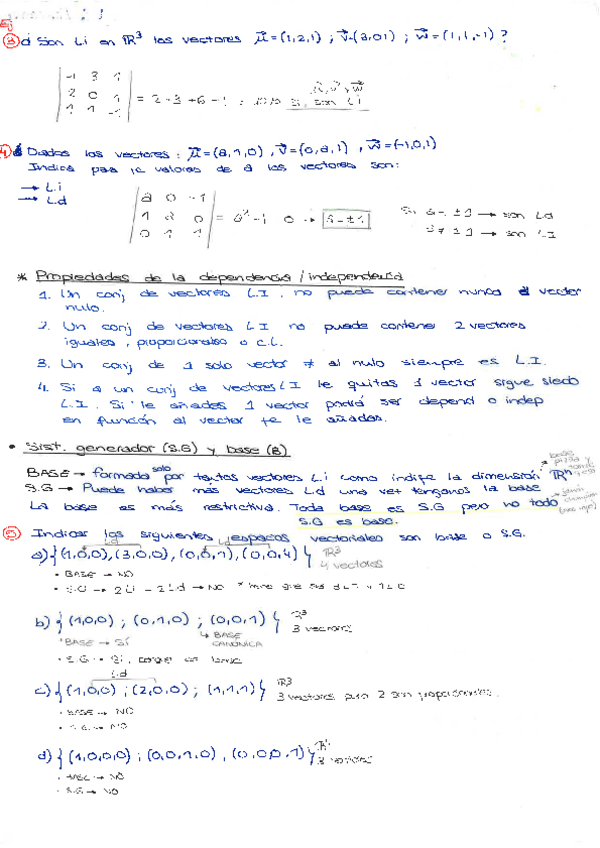 ③ ¿ Son Li en ℝ³ los vectores u⃗=(1,2,1) ; v⃗=(3,0,1) ; w⃗=(1,1,-1) ?
u⃗, v⃗, w⃗
2 0 1 = 2-3+6-1 Si, son Li
1 1 -1
④ Dados los vectores: u⃗=(a,1,0), v⃗=(0,a,1), w⃗=(-1,0,1)
Indica para que valores de a los vectores son:
→ L.i
→ L.d
a 0 -1
1 a 0
0 1 1
±1 → son Ld
±1 → son LI
* Propiedades de la dependencia / independencia
1. Un conj de vectores L.I. no puede contener nunca el vector
nulo.
2. Un conj de vectores L I no puede contener 2 vectores
iguales, proporcionales o c.L.
3. Un conj de 1 solo vector ≠ al nulo siempre es L.I.
4. Si a un conj de vectores LI le quitas 1 vector sigue siedo
L.I. Si le añades 1 vector podrá ser depend o indep
en función al vector que le añadas.
• Sist. generador (S.G) y base (B)
BASE → formada solo por tantos vectores L.i como indique la dimensión ℝⁿ
S.G → Puede haber más vectores L.d una vez tengamos la base
La base es más restrictiva. Toda base es S.G pero no todo
S.G es base.
⑤ Indicar los siguientes espacios vectoriales son base o S.G.
a) {(1,0,0), (3,0,0), (0,0,1), (0,0,4)} ℝ³
4 vectores
• BASE → NO
• S.G → 2 Li - 2 Ld → NO
b) {(1,0,0) ; (0,1,0) ; (0,0,1)} ℝ³
3 vectores
↳ BASE
CANONICA
• BASE → Sí
• S.G → Si, porque es base
L.d
c) {(1,0,0) ; (2,0,0) ; (1,1,1)} ℝ³
3 vectores pero 2 son proporcionales.
• BASE → NO
• S.G. → NO
d) {(1,0,0,0) ; (0,0,1,0) , (0,0,0,1)} ℝ⁴
3 vectores
→ NO
• S.G → NO